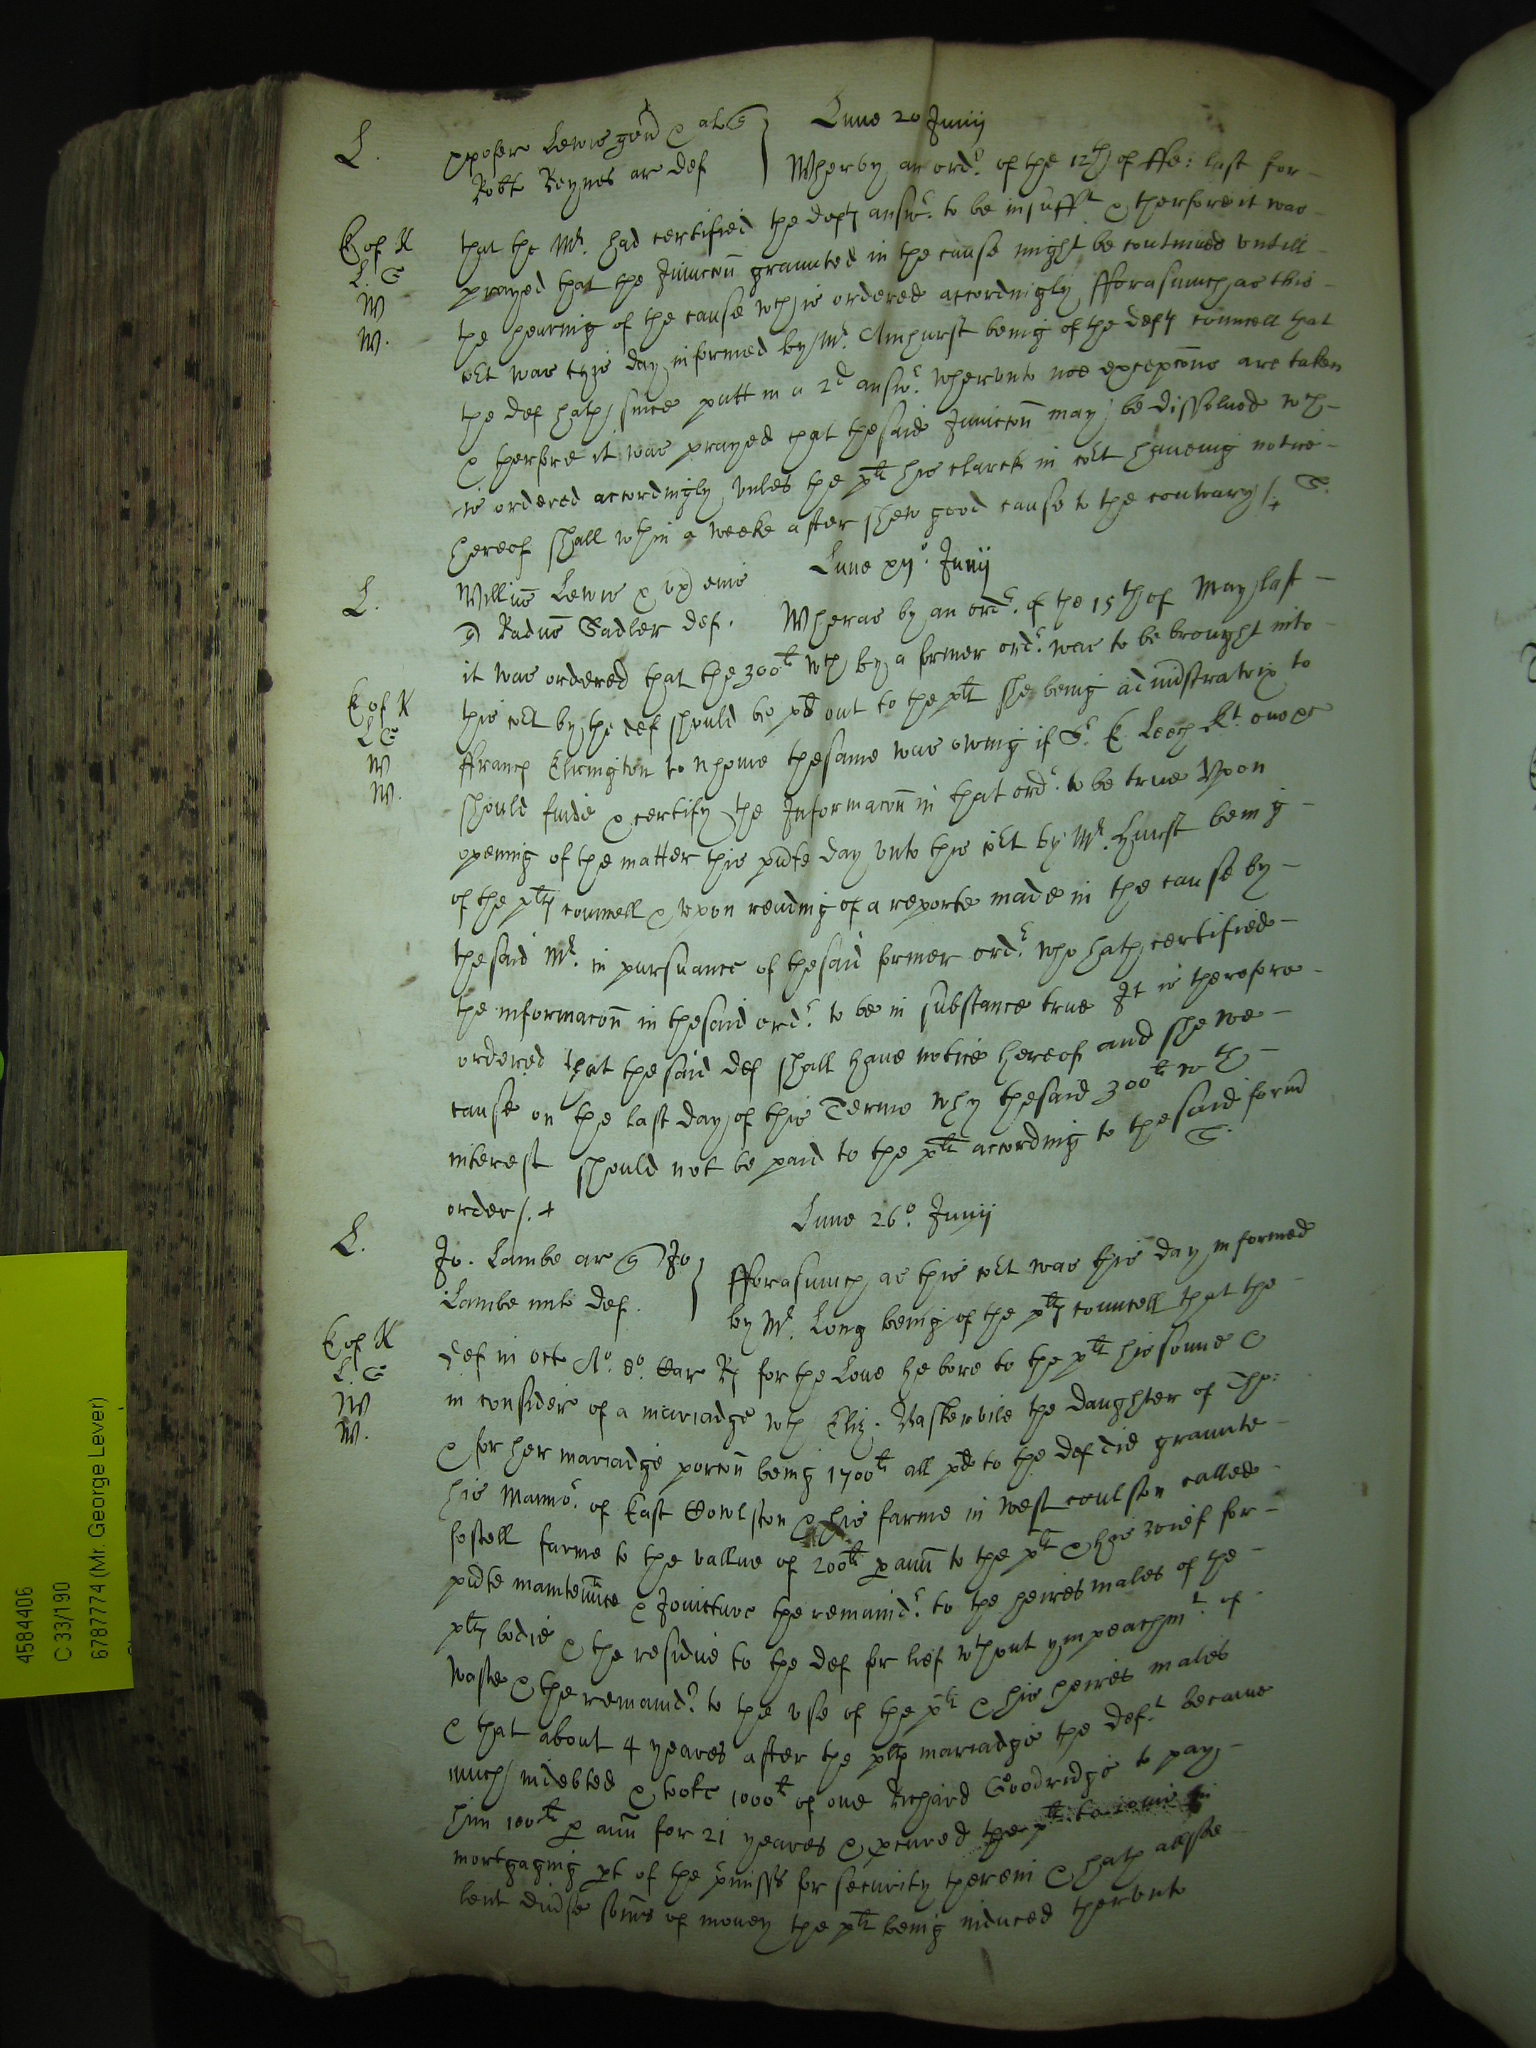 L.
Xpofer Lewis gen & al q
Robt Keynes ar def
Lune 20 Junij
Wherby an ordr. of the 12th of ffe: last for
E of K
L. C
W
W.
that the Mr. had certified the defts answr. to be insufft & therfore it was
prayed that the Iniuccon graunted in the cause might be continued vntill
the hearing of the cause wch is ordered accordingly fforasmuch as this
cort was this day informed by Mr. Amhurst being of the defts councell that
the def hath since putt in a 2d answr. whervnto noe excepcons are taken
& therfore it was prayed that thesaid Iniuccon may be dissolued wch
is ordered accordingly vnles the plt his clarck in cort haueing notice
hereof shall wthin a weeke after shew good cause to the contrary /.
L.
Lune xij°. Junij
Willius Lewis & vx eius
q Radus Sadler def.
Wheras by an ordr. of the 15th of May last
it was ordered that the 300li wch by a former ordr. was to be brought into
E of K
L C
W
W.
this cort by the def should be pd out to the plt she being administratrix to
ffrancs Elrington to whome thesame was owing if Sr. E. Leech kt. one &c
should finde & certify the Informacon in that ordr. to be true Vpon
opening of the matter this pnte day vnto this cort by Mr. Hurst being
of the plts councell & vpon reading of a reporte made in the cause by
thesaid Mr. in pursuance of thesaid former ordr. who hath certified
the informacon in thesaid ordr. to be in substance true It is therefore
ordered that the said def shall haue notice hereof and shewe
cause on the last day of this Terme why thesaid 300li wth
interest should not be paid to the plt according to thesaid form
order /.
L.
Lune 26°. Junij
Jo. Lambe ar q Jo
Lambe def.
fforasmuch as this cort was this day informed
by Mr. Long being of the plts councell that the
E of K
L. C
W
W.
def in octo Ao. 8o. Car Rs for the Loue he bore to the plt his sonne &
in consider of a mariadge wth Eliz. Baskervile the daughter of Tho:
& for her mariadge porcon being 1700li all pd to the def did graunte
his Mannor. of East Cowlston & his farme in West coulston called
fostell farme to the vallue of 200li p ann to the plt & his wief for
pnte maintennce & Joincture the remaindr. to the heires males of the
plts bodie & the residue to the def for lief wthout ympeachmt. of
waste & the remaindr. to the vse of the plt & his heires males
& that about 4 yeares after the plts mariadge the deft became
much indebted & tooke 1000li of one Richard Goodridge to pay
him 100li p ann for 21 yeares & pcured the plt to ioine in
mortgaging pt of the pmisses for security therein & hath allsoe
lent diuse somes of money the plt being induced thervnto
4584406
C 33/190
6787774 (Mr. George Lever)